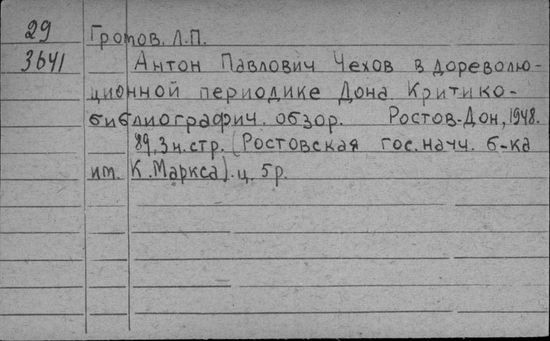 29 Громов. Л.П.
3641 Антон Павлович Чехов в дореволю-
ционной периодике Дона. Критико-
библиографич. обзор. Ростов-Дон, 1948.
89, 3 н. стр. (Ростовская гос. научн. б-ка
им. К. Маркса). ц. 5 р.